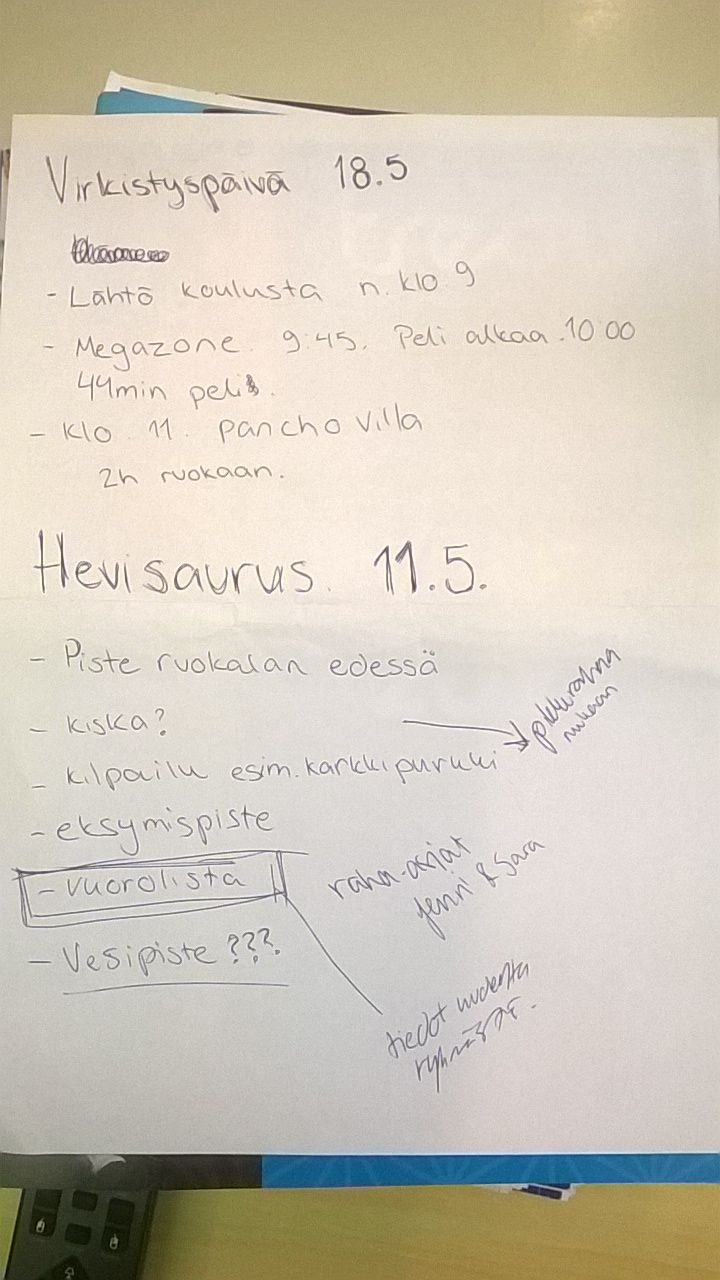 Virkistyspäivä 18.5
- Lähtö koulusta n. klo 9
- Megazone. 9:45. Peli alkaa.10:00
44min peli.
- Klo. 11. pancho villa
2h ruokaan.
Hevisaurus. 11.5.
- Piste ruokalan edessä
- kiska?
pikkurahna
mukaan
- kilpailu esim. karkkipurkki
- eksymispiste
- vuorolista
raha-asiat
Jenni & Sara
- Vesipiste???
tiedot